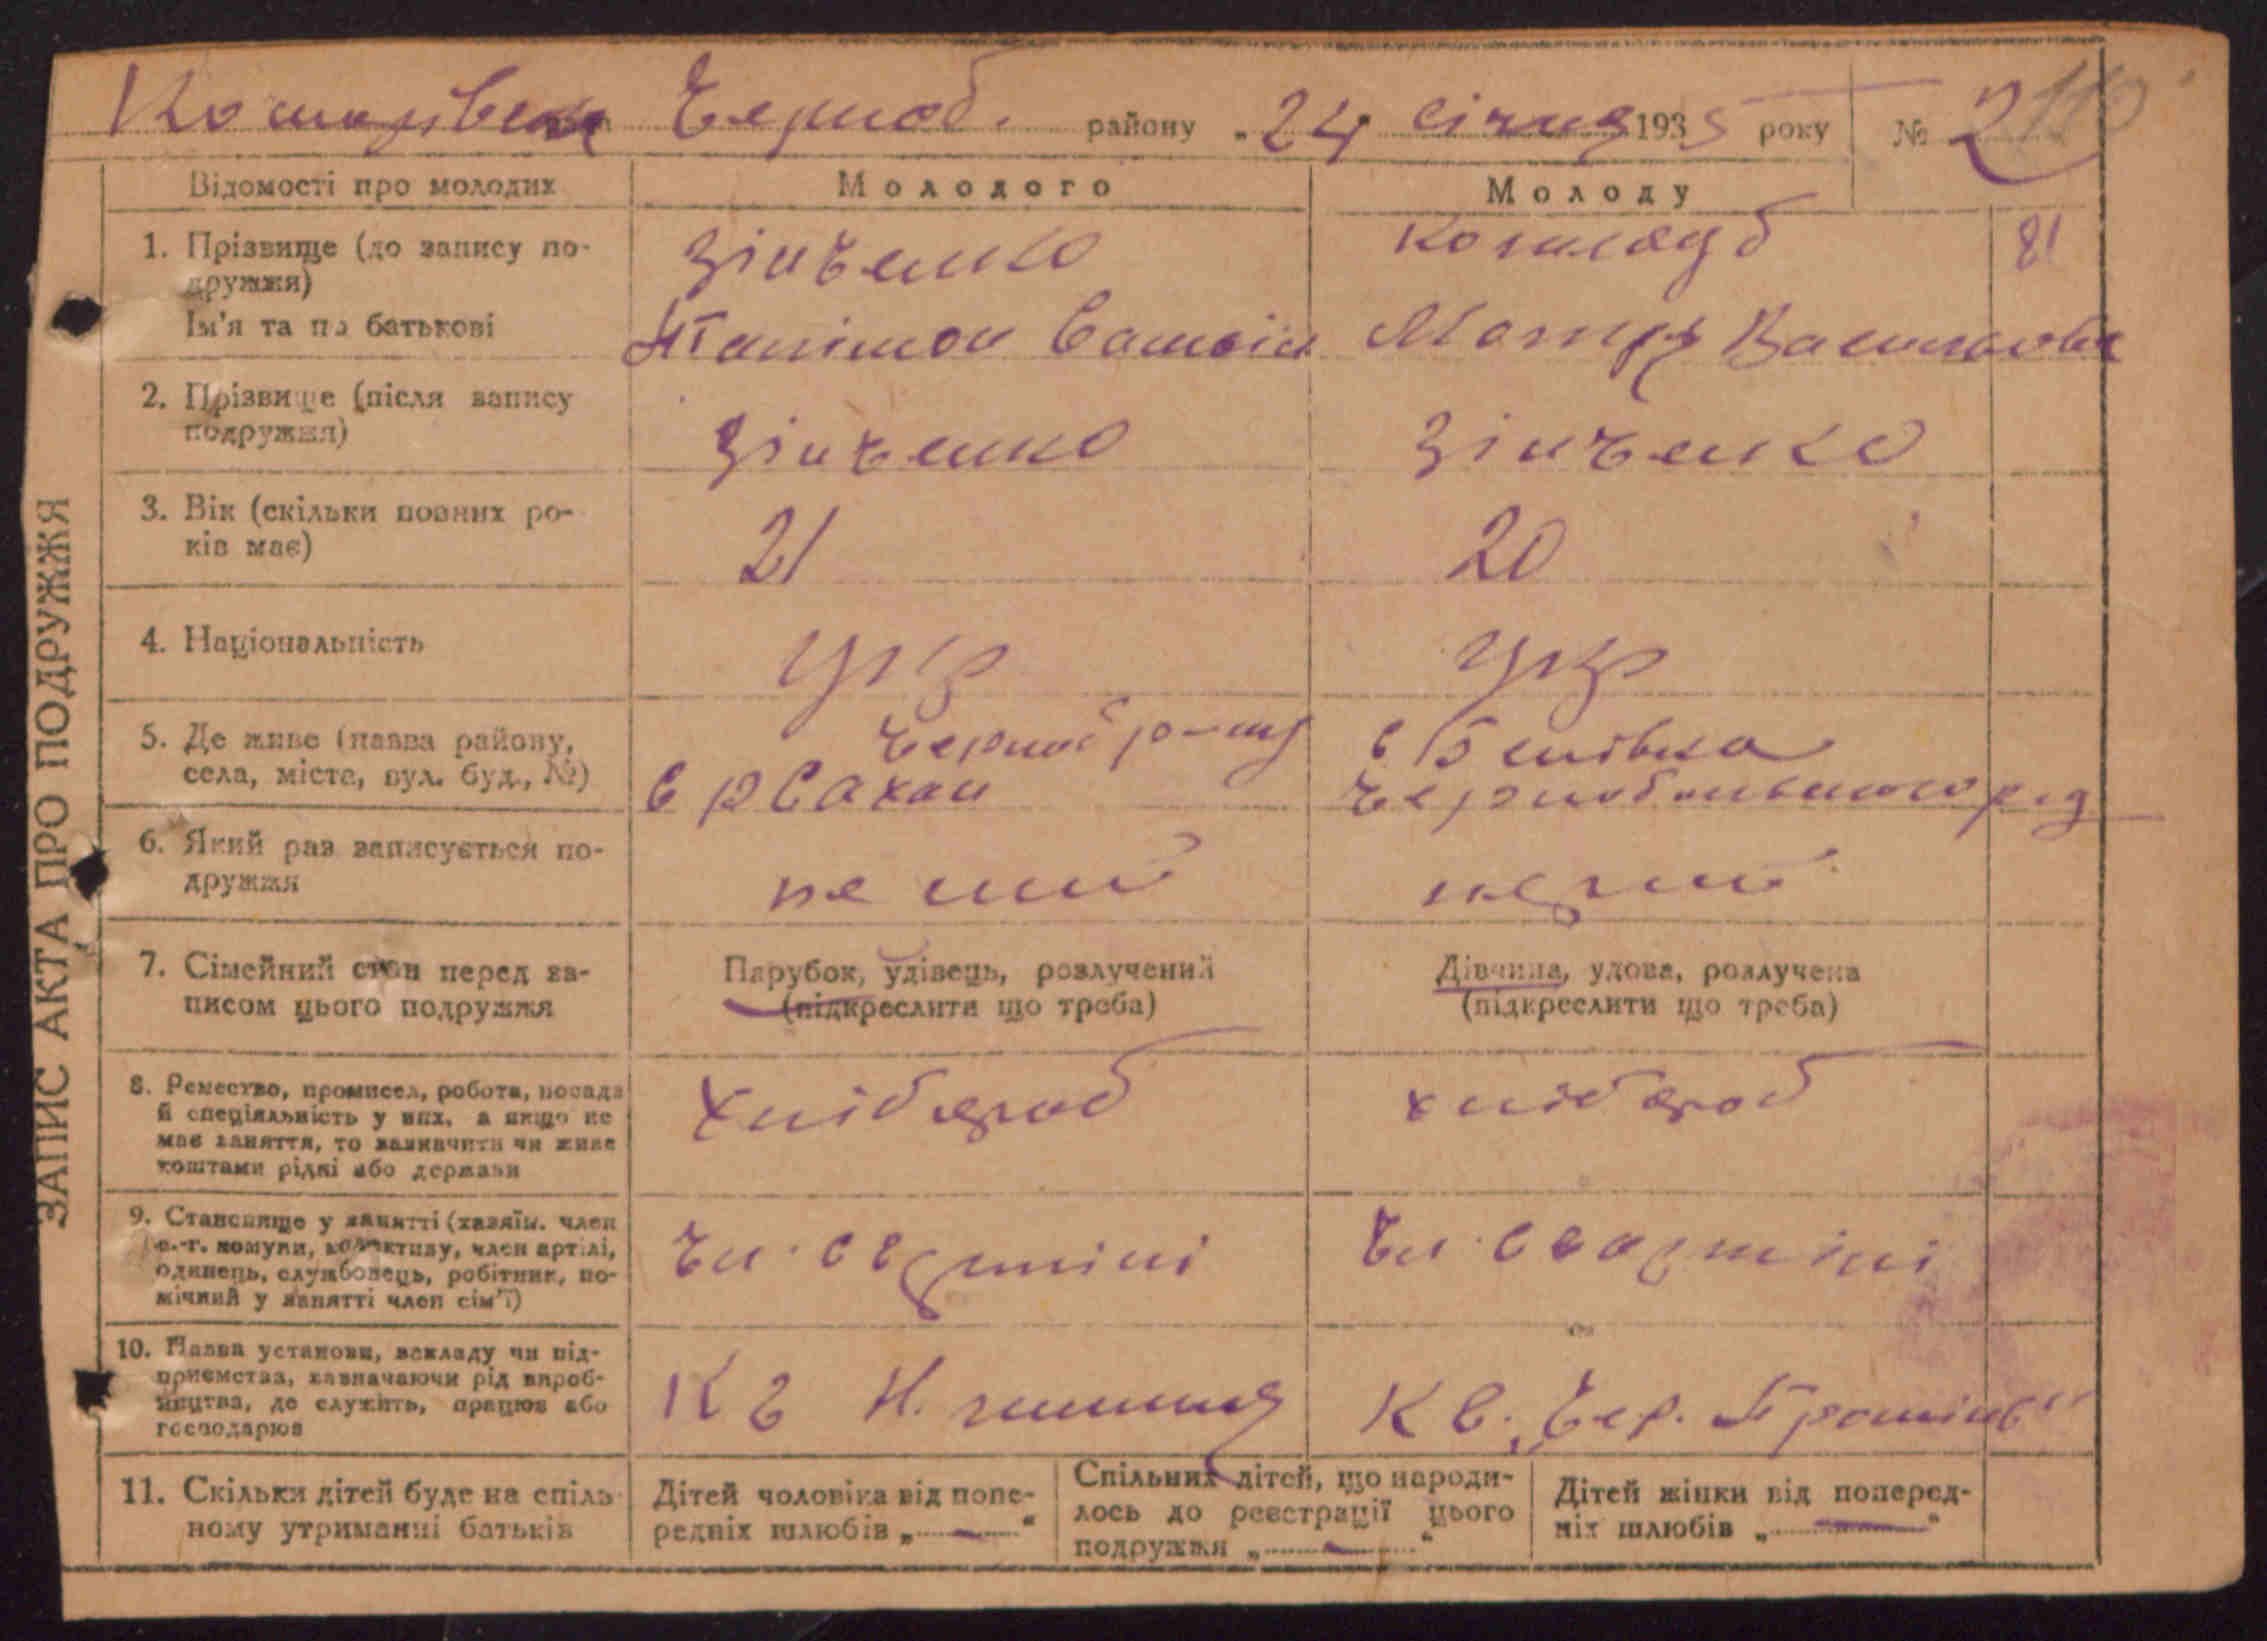 Чорноб. району „24 січня 1935 року № 2
Відомості про молодих Молодого Молоду
1. Прізвище (до запису подружжя) Зінченко
81
Ім'я та по батькові Мотря Васильовна
2. Прізвище (після запису подружжя) Зінченко Зінченко
3. Вік (скільки повних років має) 21 20
4. Національність укр укр
5. Де живе (назва району, села, міста, вул. буд., №)
с Р Сахан
6. Який раз записується подружжя перший
7. Сімейний стан перед записом цього подружжя
Парубок, удівець, розлучений (підкреслити що треба)
Дівчина, удова, розлучена (підкреслити що треба)
8. Ремество, промисел, робота, посада
й спеціяльність у них, а якщо не
має заняття, то зазначити чи живе
коштами рідні або держави
хлібороб хлібороб
9. Становище у занятті (хазяїн, член
с.-г. комуни, колективу, член артілі,
одинець, службовець, робітник, помічний у занятті член сім'ї)
чл. с г артілі
10. Назва установи, закладу чи підприємства, зазначаючи рід виробництва, де служить, працює або
господарює
К Г Н. життя К Г. „Чер. Промінь"
11. Скільки дітей буде на спільному утриманні батьків
Дітей чоловіка від попередніх шлюбів „—"
Спільних дітей, що народилось до реєстрації цього
подружжя „—"
Дітей жінки від попередніх шлюбів „—"
ЗАПИС АКТА ПРО ПОДРУЖЖЯ